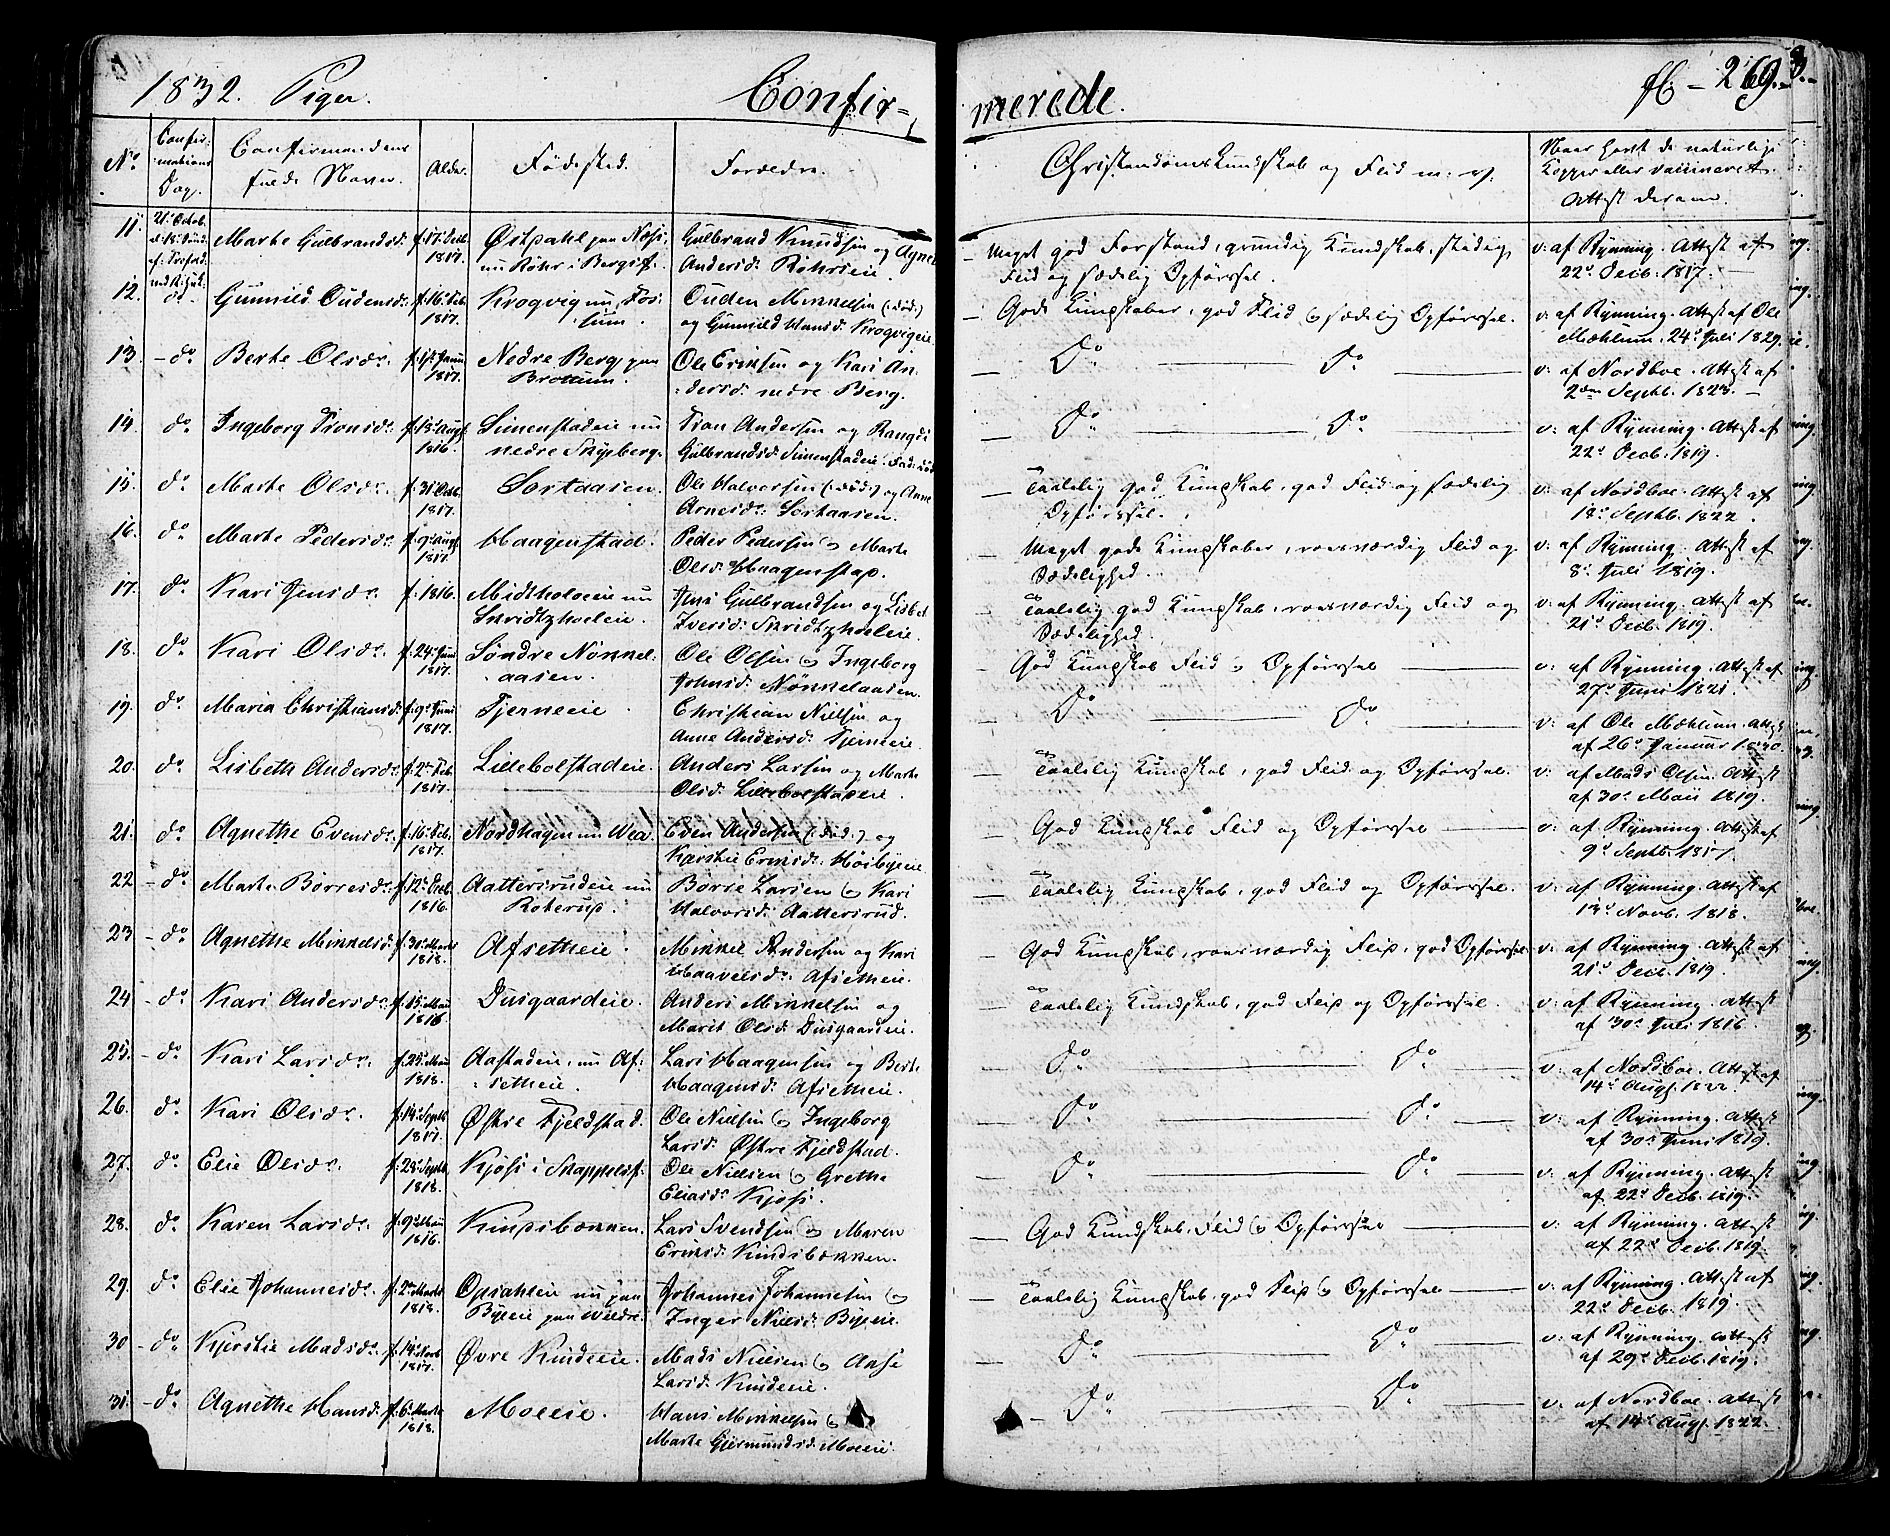 1832. Piger. Confir-
merede. fl - 269.
No
Confir-
mations
Dag.
Confirmandens
fulde Navn.
Alder.
Fødested.
Forældre.
Christendoms Kundskab og Flid m. v.
Naar havt de naturlige
Kopper eller vaccineret.
Attest derom.
11. 21de Octob. Marthe Gulbrandsd: f. 17. Decb. 1817. Østdahl paa Næss, nu Røhr i Bergsf. Gulbrand Knudsen og Agnet Andersd: Røhrseie. Meget god Forstand, grundig Kundskab, stadig Flid og sædelig Opførsel. v: af Rynning. Attest af 22de Decb. 1817.
12. do Gunnild Oudensdr. f. 16. Feb. 1817. Krogvig nu Fossum. Ouden Mikkelsen (: død :) og Gunnild Hansd: Krogvigeie. Gode Kundskaber, god Flid og sædelig Opførsel. v: af Rynning. Attest af Ole Mæhlum. 24de Juli 1829.
13. - do Berthe Olsdr. 1817. Nedre Berg paa Brøttum. Ole Eriksen og Kari Andersd: nedre Berg. Do Do v: af Nordboe. Attest af 2den Septb. 1823.
14. do Ingeborg Tronsdr. f. 13. Augs. 1816. Simenstadeie nu nedre Skyberg. Tron Andersen og Rangdi Gulbrandsd: Simenstadeie. Fad: død Do Do v: af Rynning. Attest af 22de Decb. 1819.
15. do Marthe Olsdr. f. 31. Octb. 1817. Sortaasen. Ole Halvorsen (: død :) og Anne Arnesdr. Sortaasen. Taalelig god Kundskab, god Flid og sædelig Opførsel. v: af Nordboe. Attest af 18de Septb. 1822.
16. do Marthe Pedersdr. f. 9. Augs. 1817. Haagenstad. Peder Pedersen og Marthe Olsd: Haagenstad. Meget gode Kundskaber, roesværdig Flid og Sædelighed. v: af Rynning. Attest af 8de Juli 1819.
17. do Kari Jensdr. f. 1816. Midtholoeie nu Skridtzholeie. Jens Gulbrandsen og Lisbet Iversd: Skridtzholeie. Taalelig god Kundskab, roesværdig Flid og Sædelighed. v: af Rynning. Attest af 21de Decb. 1819.
18. do Kari Olsdr. f. 24. Juni 1817. Søndre Nønnelaasen. Ole Olsen og Ingeborg Johnsd: Nønnelaasen. God Kundskab Flid og Opførsel v: af Rynning. Attest af 27de Juni 1821.
19. do Maria Christiansd: f. 9. Juni 1817. Tjerneeie. Christian Nielsen og Anne Andersd: Tjerneeie. Do Do v: af Ole Mæhlum. Attest af 26de Januar 1830.
20. do Lisbeth Andersdr. f. 2. Feb. 1817. Lillebolstadeie. Anders Larsen og Marthe Olsd: Lillebolstadeie. Taalelig Kundskab, god Flid og Opførsel. v: af Mads Olsen. Attest af 30te Maii 1819.
21. do Agnethe Evensdr. f. 16. Feb. 1817. Nordhagen nu Wea. Even Andersen (: død :) og Kierstie Eriksd: Høibyeie. God Kundskab Flid og Opførsel v: af Rynning. Attest af 9de Septb. 1817.
22 - do Marthe Børresdr. f. 12. Decb. 1816. Aattersrudeie nu Roterup. Børre Larsen og Kari Halvorsd: Aattersrud. Taalelig Kundskab, god Flid og Opførsel. v: af Rynning. Attest af 13de Novb. 1818.
23 - do Agnethe Mikkelsd: f. 30. Marts 1818. Afsetheie. Mikkel Andersen og Kari Haavelsdr. Afsetheie. God Kundskab, roesværdig Flid, god Opførsel v: af Rynning. Attest af 21de Decb. 1819.
24 - do Kari Andersdr. f. 15. Mai 1816. Dusgaardeie. Anders Mikkelsen og Marit Olsd: Dusgaardeie. Taalelig Kundskab, god Flid og Opførsel. v: af Rynning. Attest af 30te Juli 1816.
25. - do Kari Larsdr. f. 25. Mai 1818. Aastadeie, nu Afsetheie. Lars Haagensen og Berthe Haagensd: Afsetheie. Do Do v: af Nordboe. Attest af 14de Augs. 1822.
26. do Kari Olsdr. f. 14. Septb. 1817. Østre Fjeldstad. Ole Nielsen og Ingeborg Larsd: Østre Fjeldstad. Do Do v: af Rynning. Attest af 30te Juni 1819.
27. do Elie Olsdr. f. 28. Septb. 1818. Kjøs i Snappelsf: Ole Nielsen og Grethe Eliasdr. Kjøs. Do Do v: af Rynning. Attest af 22de Decb. 1819.
28. do Karen Larsdr. f. 9. Mai 1816. Kindsbækken. Lars Svendsen og Maren Eriksd: Kindsbækken. God Kundskab, Flid og Opførsel v: af Rynning. Attest af 22de Decb. 1819.
29. do Elie Johannesdr. f. 2. Marts 1818. Opsahleie nu paa Byeeie paa Weldre. Johannes Johannesen og Inger Nielsd: Byeeie. Taalelig Kundskab, god Flid og Opførsel v: af Rynning. Attest af 22de Decb. 1819.
30 - do Kjerstie Madsdr. f. 14. Novb. 1817. Øvre Kindeeie. Mads Nielsen og Aase Larsd: Kindeeie. Do Do v: af Rynning. Attest af 29de Decb. 1819.
31. - do Agnethe Hansd: f. 6. Marts 1818. Moeeie. Hans Mikkelsen og Marthe Gjermundsd: Moeeie. Do Do v: af Nordboe. Attest af 14de Augs. 1822.